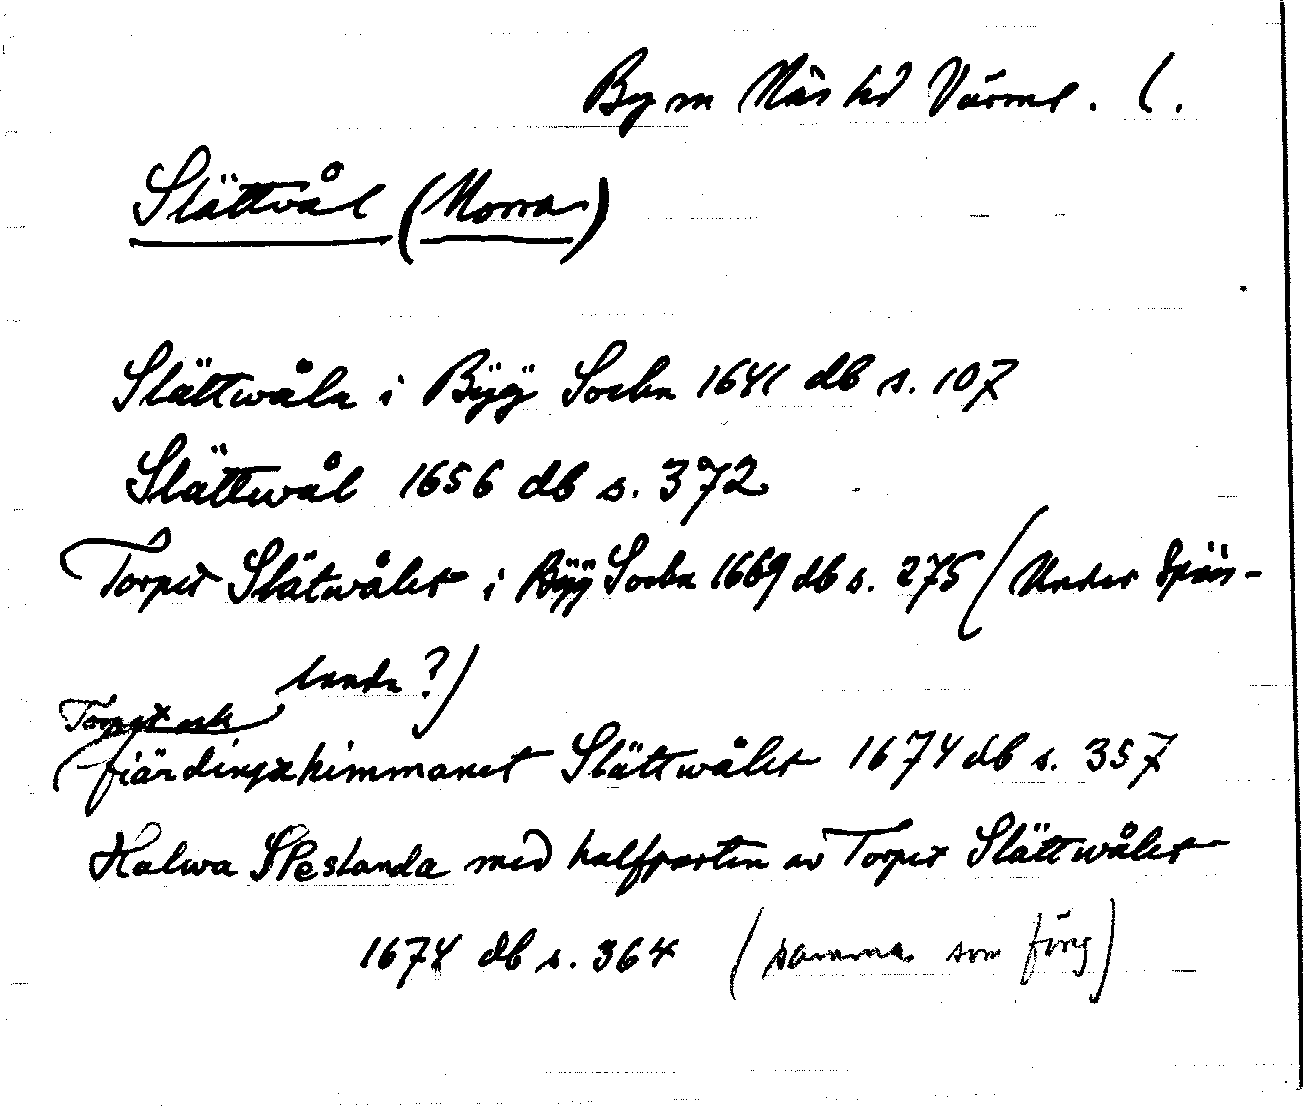 By sn Näs hd Värml. l.
Slättvål (Norra)
Slättwåln i Bÿÿ Sochn 1641 db s. 107
Slättwål 1656 db s. 372
Torpet Slätwålet i Bÿÿ Sochn 1669 db s. 275 (Under Späs-
landa?)
Torpet och
(fiärdingzhimmanet Slättwålet 1674 db s. 357
Halwa SPeslanda med halfparten av Torpet Slättwålet
1674 db s. 364 (samma som föreg)